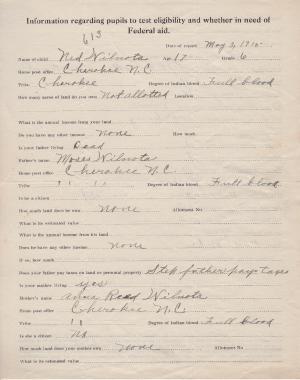 Information regarding pupils to test eligibility and whether in need of
Federal aid.
613
Date of record May 3, 1915
Name of child Ned Wilnota Age 17 Grade 6
Home post office Cherokee N.C.
Tribe Cherokee Degree of Indian blood Full blood
How many acres of land do you own Not allotted Location
What is the annual income from your land
Do you have any other income none How much
Is your father living Dead
Father's name Moses Wilnota
Home post office Cherokee N.C.
Tribe " " Degree of Indian blood Full blood
Is he a citizen
How much land does he own none Allotment No
What is its estimated value
What is the annual income from his land
Does he have any other income none
If so, how much
Does your father pay taxes on land or personal property Step father pays taxes
Is your mother living yes
Mother's name Anna Reed Wilnota
Home post office Cherokee N.C.
Tribe " Degree of Indian blood Full blood
Is she a citizen No
How much land does your mother own none Allotment No
What is its estimated value